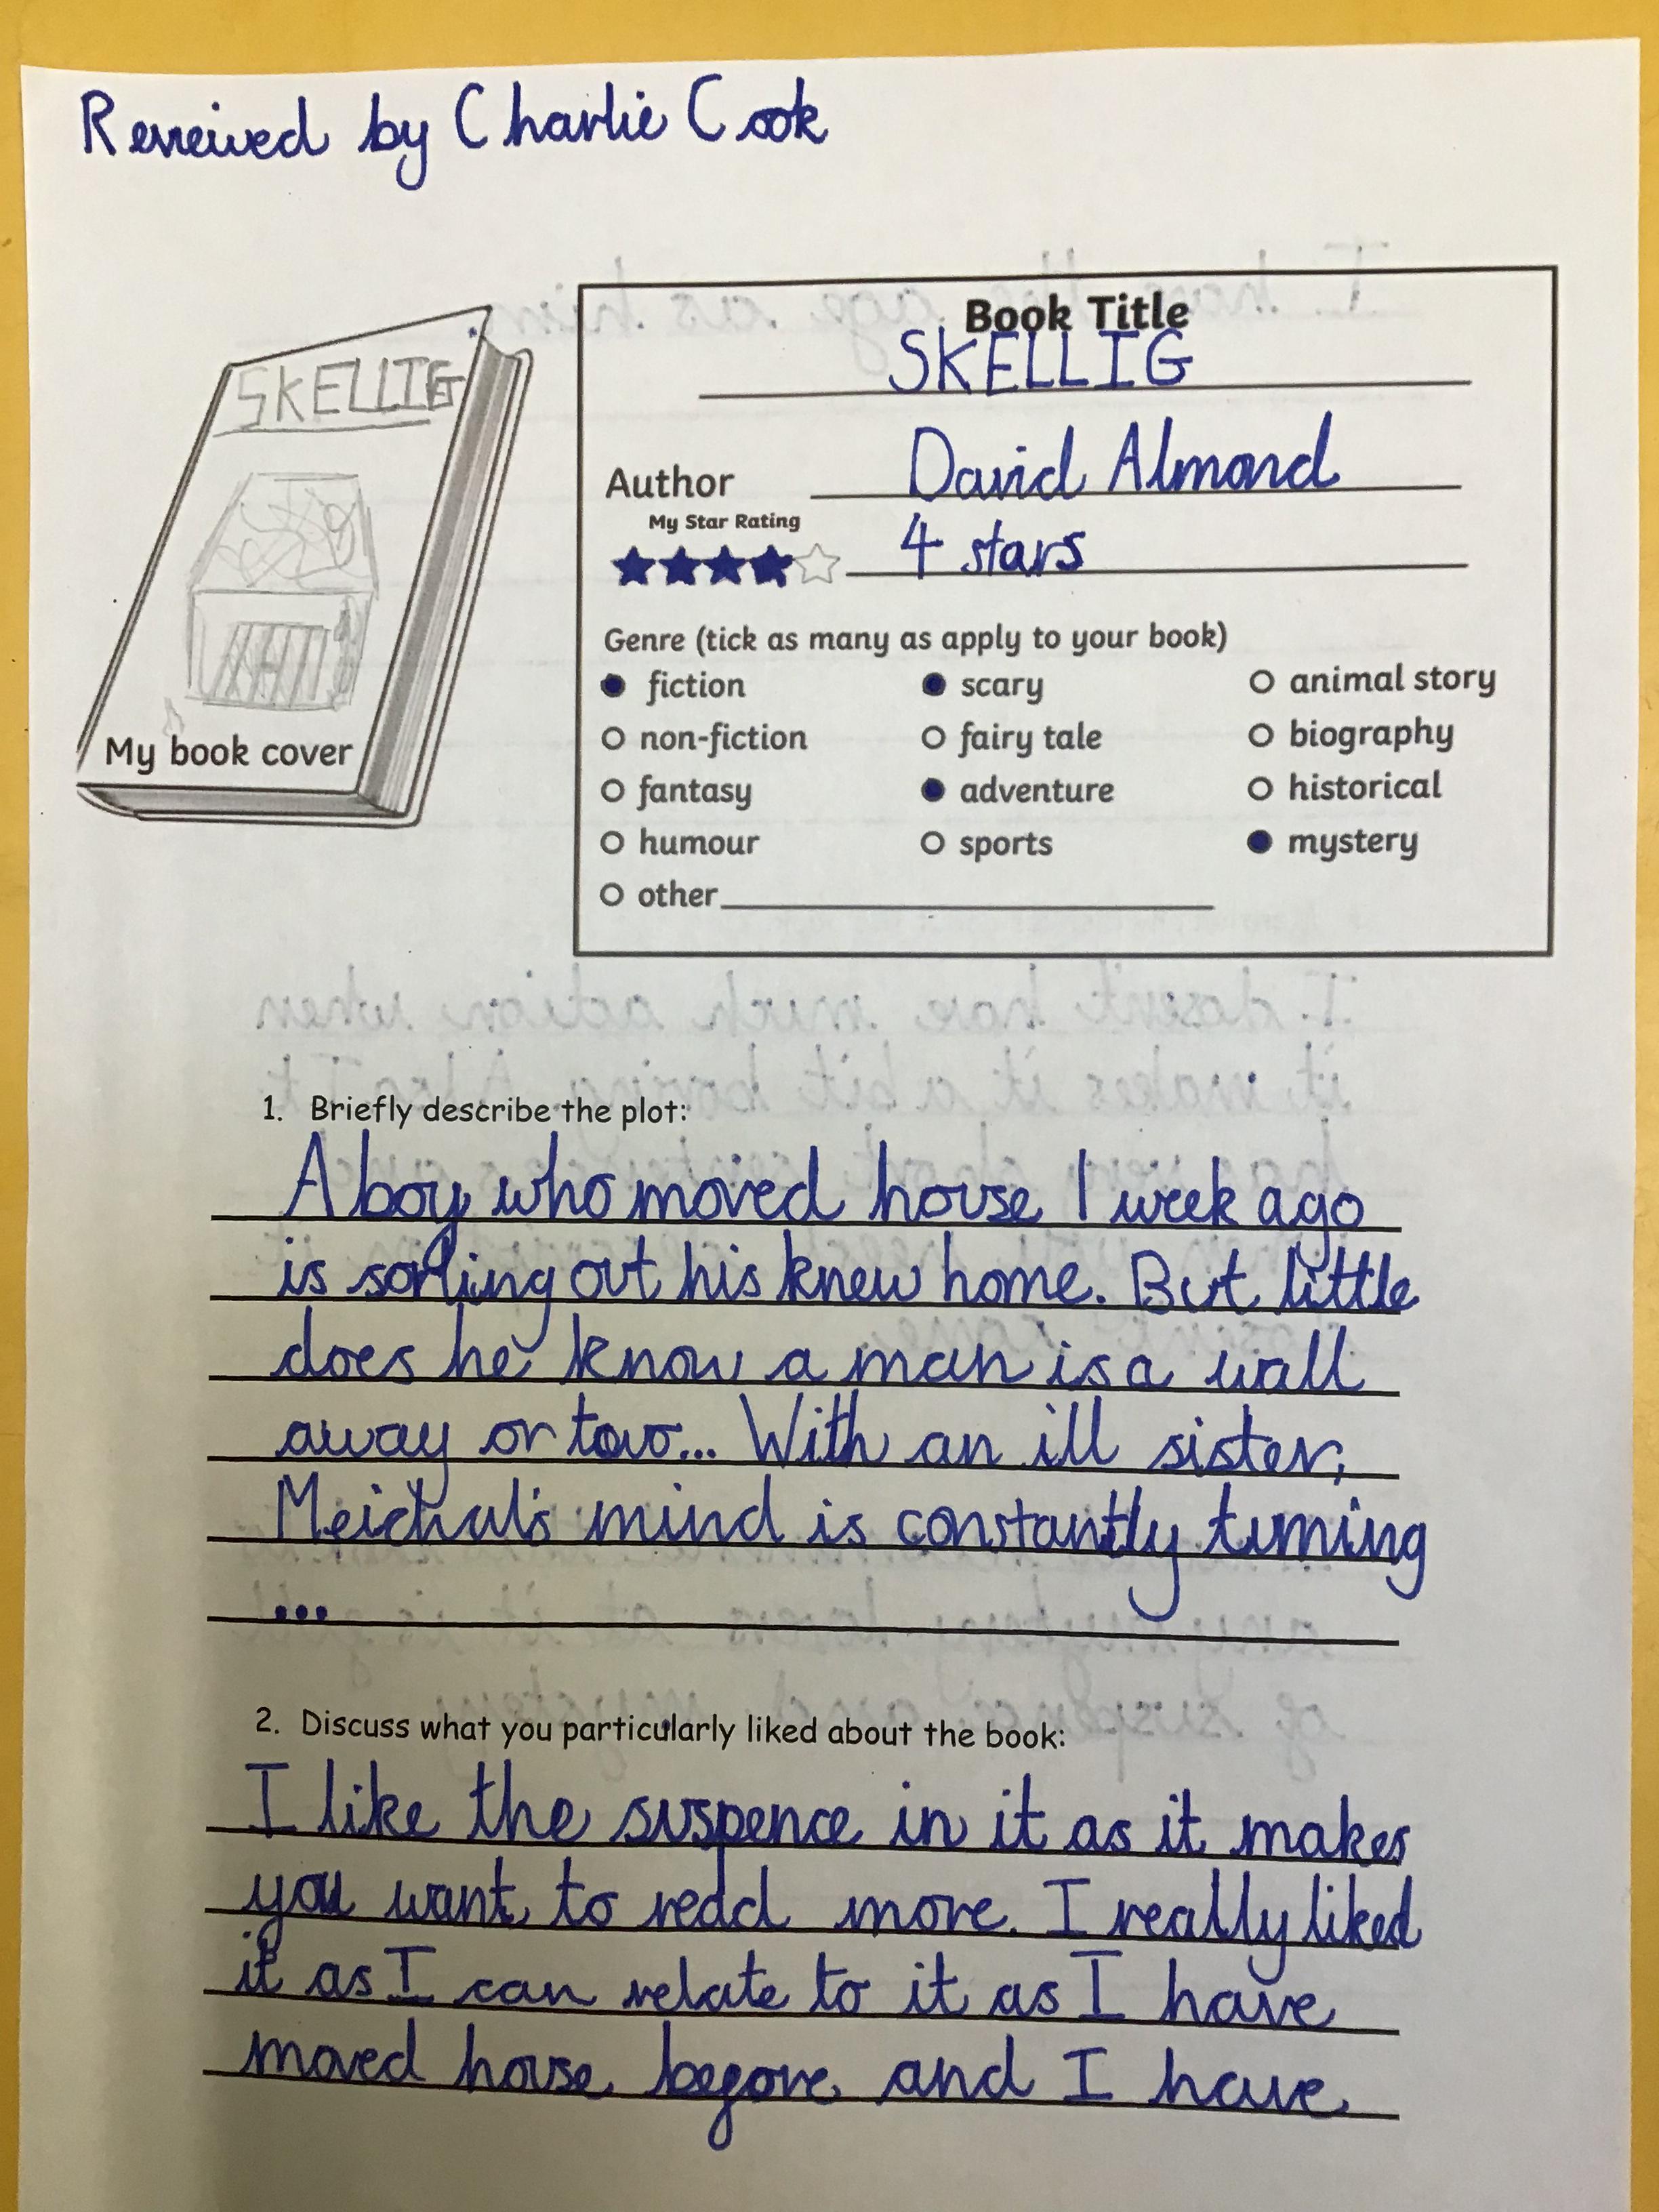 Reveiwed by Charlie Cook
SKELLIG
My book cover
Book Title
SKELLIG
Author David Almond
My Star Rating
4 stars
Genre (tick as many as apply to your book)
fiction scary animal story
non-fiction fairy tale biography
fantasy adventure historical
humour sports mystery
other
1. Briefly describe the plot:
A boy who moved house 1 week ago
is sorting out his knew home. But little
does he know a man is a wall
away or two... With an ill sister,
Meichal's mind is constantly turning
...
2. Discuss what you particularly liked about the book:
I like the suspence in it as it makes
you want to read more. I really liked
it as I can relate to it as I have
moved house before and I have